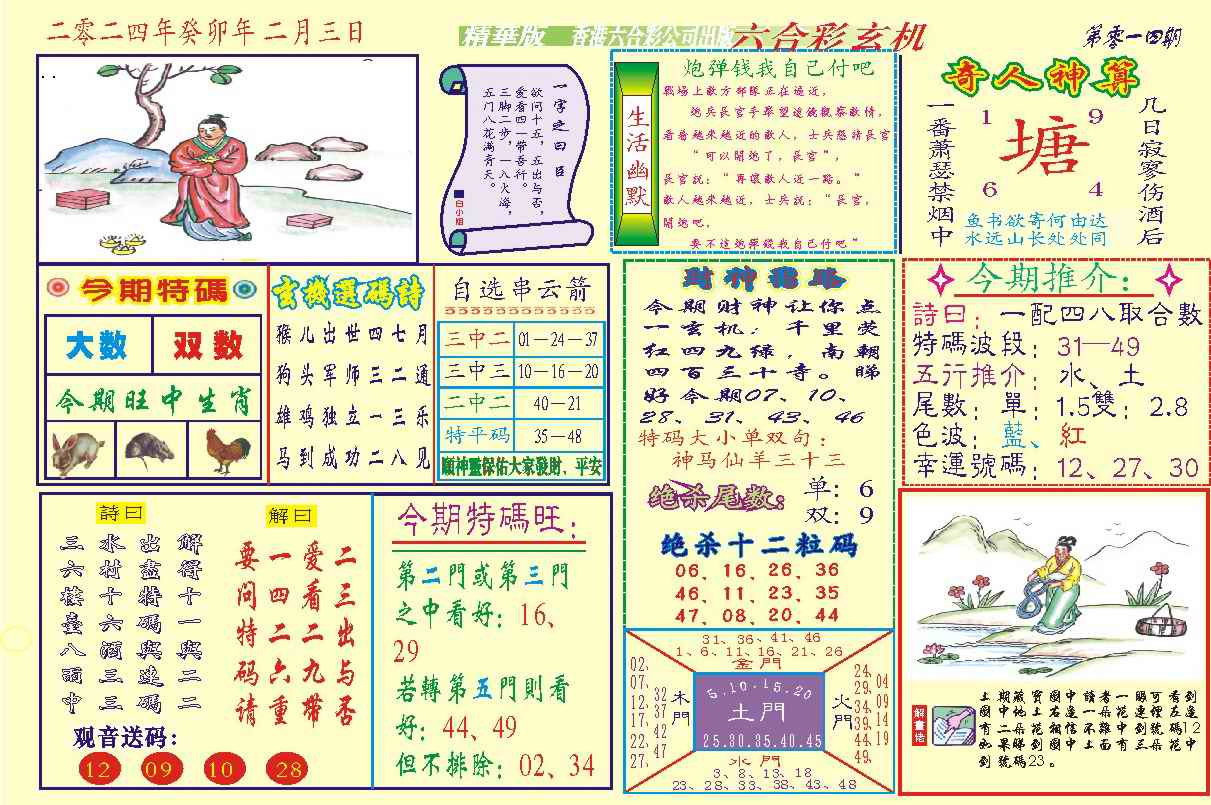 二零二四年癸卯年二月三日
精華版 香港六合彩公司出版 六合彩玄机
第零一四期
一字之曰
欲问十五，五出与否，
爱看四一带吾行。
三脚二步，一八火海，
五门八花满青天。
白小姐
生活幽默
炮弹钱我自己付吧
戰場上敵方部隊正在逼近，
炮兵長官手舉望遠鏡觀察敵情，
看着越来越近的敵人，士兵懇請長官
“可以開炮了，長官”，
長官説：“再讓敵人近一點。”
敵人越来越近，士兵説：“長官，
開炮吧，
要不這炮彈錢我自己付吧”
奇人神算
几日寂寥伤酒后
一番萧瑟禁烟中
1 9
塘
6 4
鱼书欲寄何由达
水远山长处处同
今期特碼
大数 双数
今期旺中生肖
玄機選碼詩
猴儿出世四七月
狗头军师三二通
雄鸡独立一三乐
马到成功二八见
自选串云箭
三中二 01—24—37
三中三 10—16—20
二中二 40—21
特平码 35—48
願神靈保佑大家發財、平安
財神
今期财神让你点
一玄机：千里荧
红四九绿，南朝
四百三十寺。睇
好今期07、10、
28、31、43、46
特码大小单双句：
神马仙羊三十三
绝杀尾数：
单：6
双：9
绝杀十二粒码
06、16、26、36
46、11、23、35
47、08、20、44
今期推介：
詩曰：一配四八取合數
特碼波段：31—49
五行推介：水、土
尾數：單：1.5雙：2.8
色波：藍、紅
幸運號碼：12、27、30
詩曰
三六樓臺八面中
水村十六酒三三
出盡特碼與連碼
解得十一與二二
解曰
要问特码请
一四二六重
爱看二九带
二三出与否
观音送码：
12 09 10 28
今期特碼旺：
第二門或第三門
之中看好：16、
29
若轉第五門則看
好：44、49
但不排除：02、34
31、36、41、46
1、6、11、16、21、26
金門
02、07、12、17、22、27、
32、37、42、47
木門
5.10.15.20
土門
25.30.35.40.45
火門
24、29、34、39、44、49、
04、09、14、19
水門
3、8、13、18
23、28、33、38、43、48
解畫佬
土期藏寶圖中讀者一眼可看到
圖中地上右邊一朵花連裡左邊
有二朵花相信不難中到號碼12
如果睇到圖中土面有三朵花中
到號碼23。